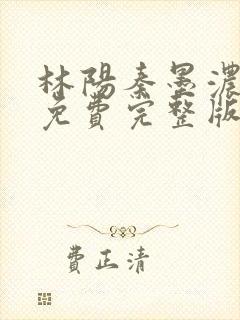 林陽秦墨濃
免費完整版
費正清